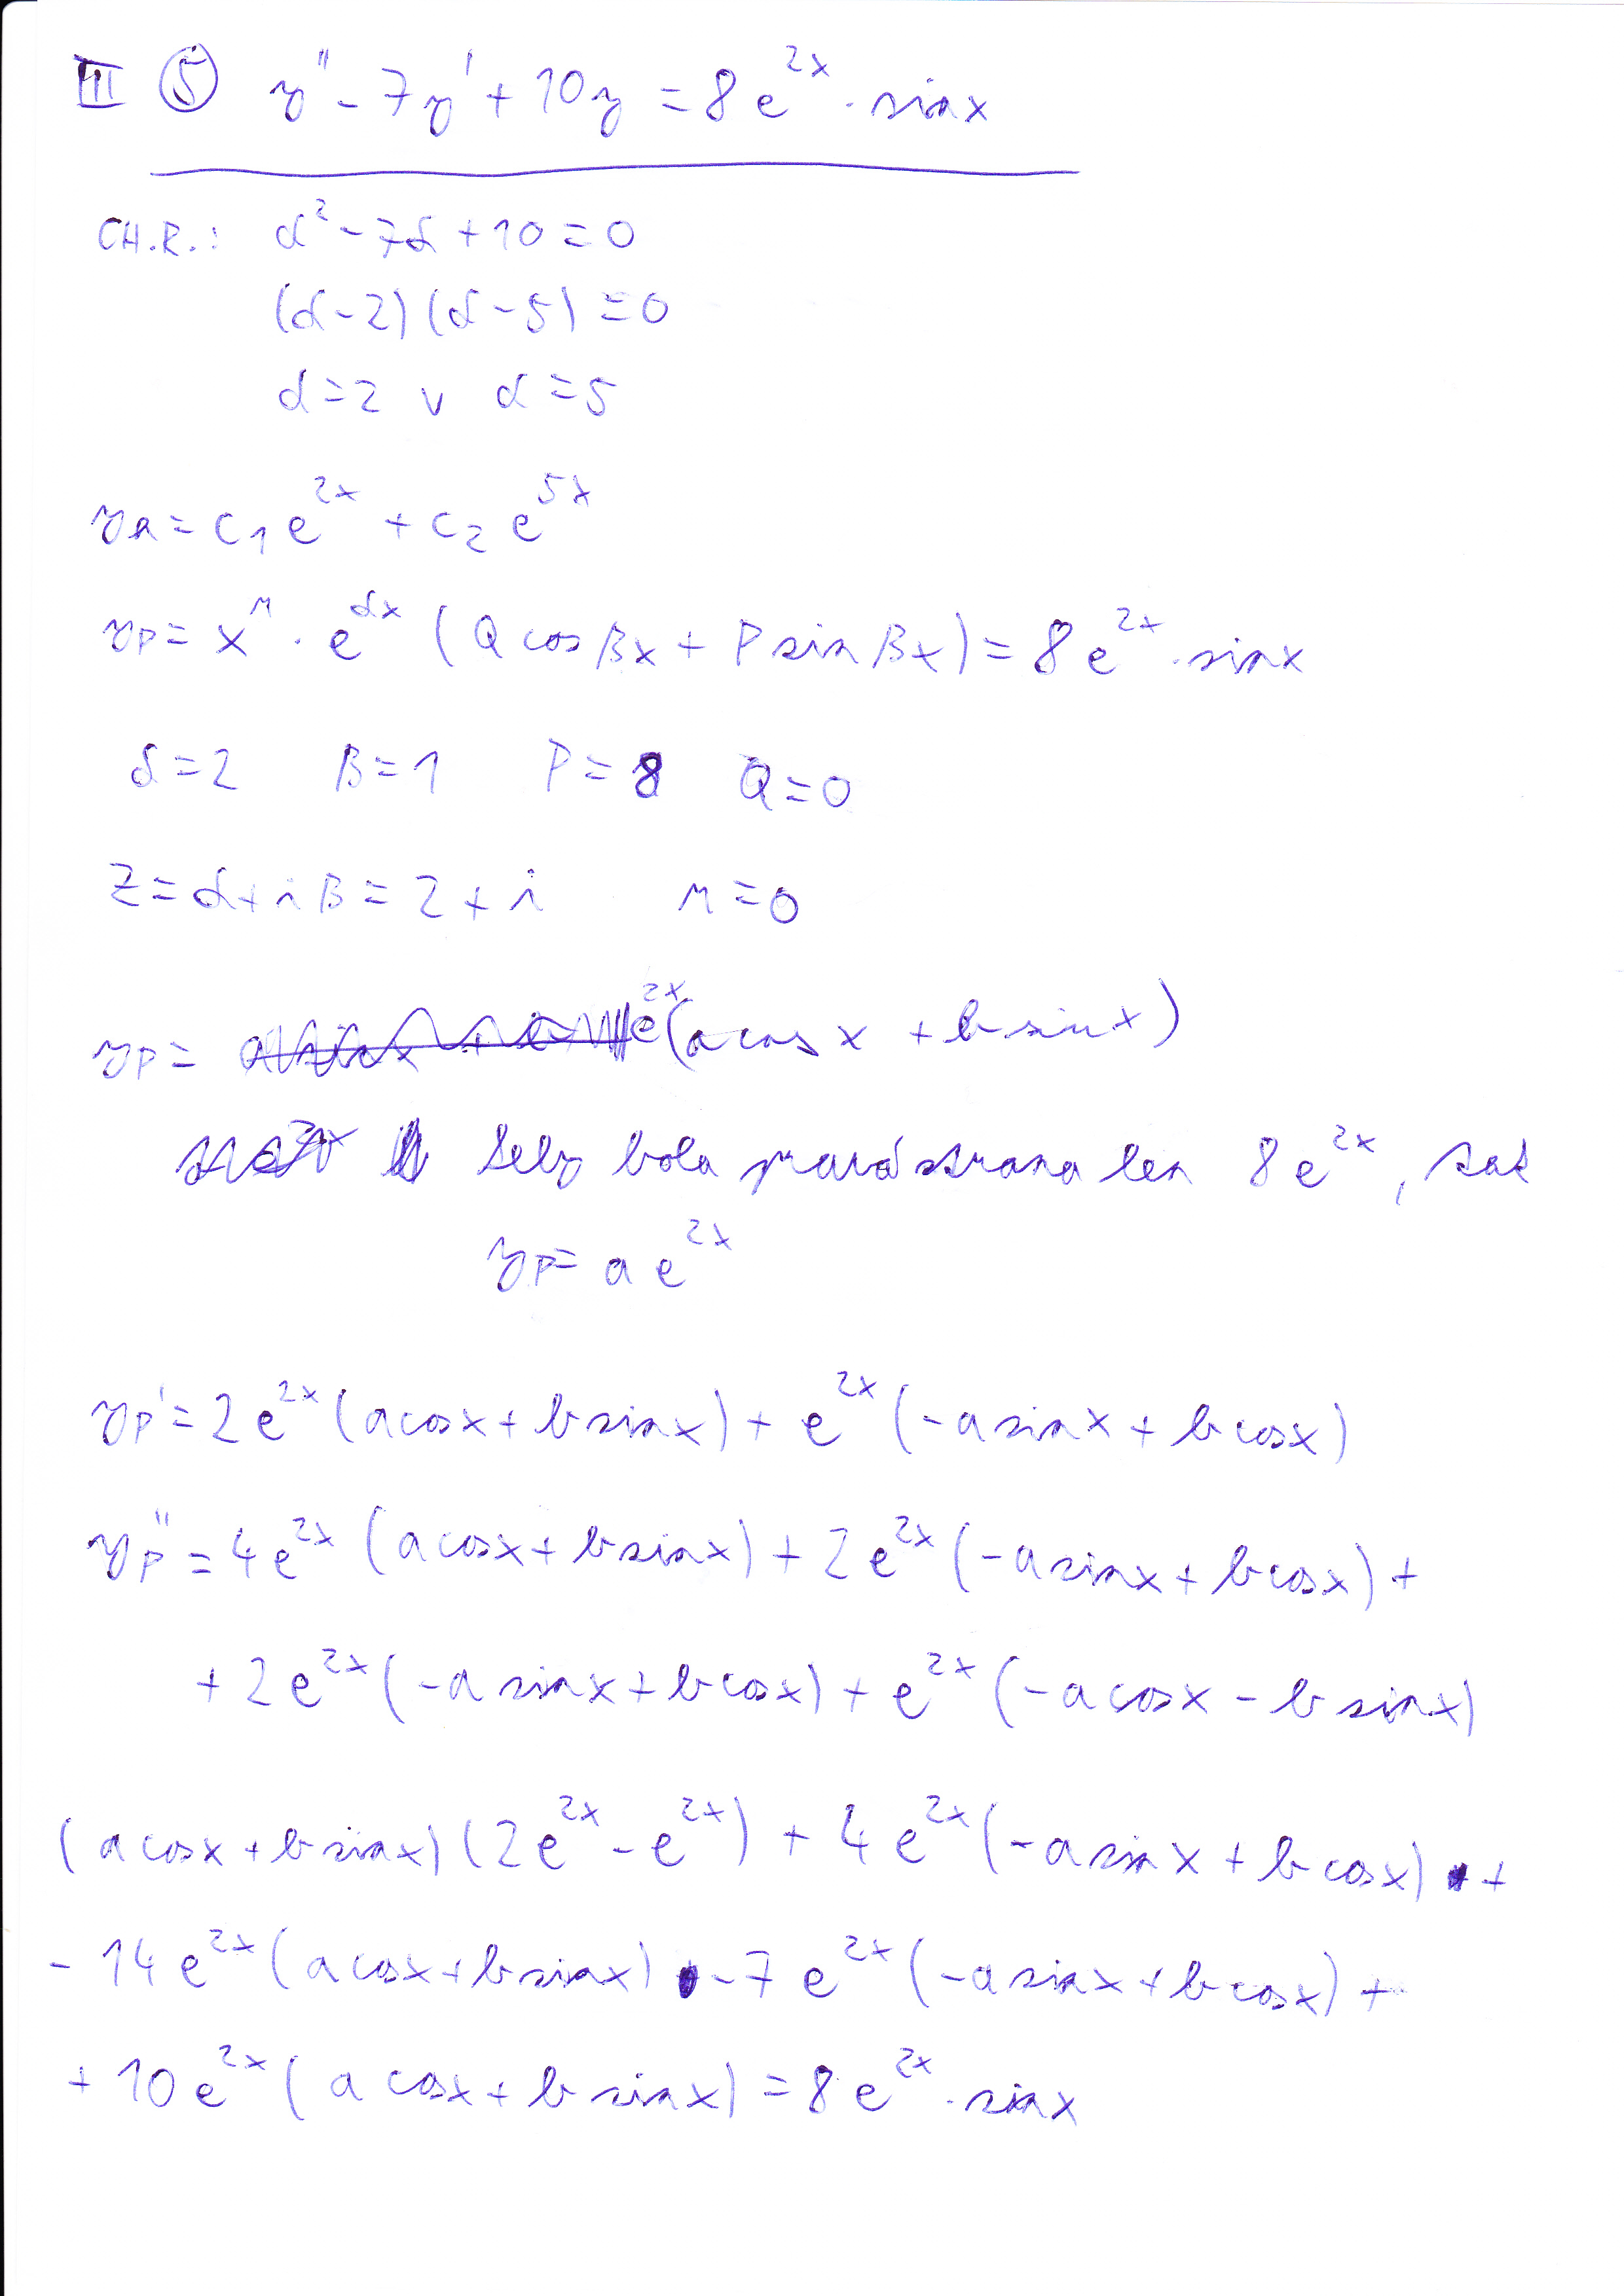 III ⑤ y'' - 7y' + 10y = 8e^{2x} · sinx
CH.R.: α² - 7α + 10 = 0
(α - 2)(α - 5) = 0
α = 2 v α = 5
yh = c₁e^{2x} + c₂e^{5x}
yp = x^n · e^{αx} (Q cos βx + P sin βx) = 8e^{2x} · sinx
α = 2 β = 1 P = 8 Q = 0
Z = α + iβ = 2 + i n = 0
yp = e^{2x}(a cos x + b sin x)
keby bola pravá strana len 8e^{2x}, tak
yp = ae^{2x}
yp' = 2e^{2x}(a cosx + b sinx) + e^{2x}(-a sinx + b cosx)
yp'' = 4e^{2x}(a cosx + b sinx) + 2e^{2x}(-a sinx + b cosx) +
+ 2e^{2x}(-a sinx + b cosx) + e^{2x}(-a cosx - b sinx)
(a cosx + b sinx)(2e^{2x} - e^{2x}) + 4e^{2x}(-a sinx + b cosx) +
- 14e^{2x}(a cosx + b sinx) - 7e^{2x}(-a sinx + b cosx) +
+ 10e^{2x}(a cosx + b sinx) = 8e^{2x} · sinx